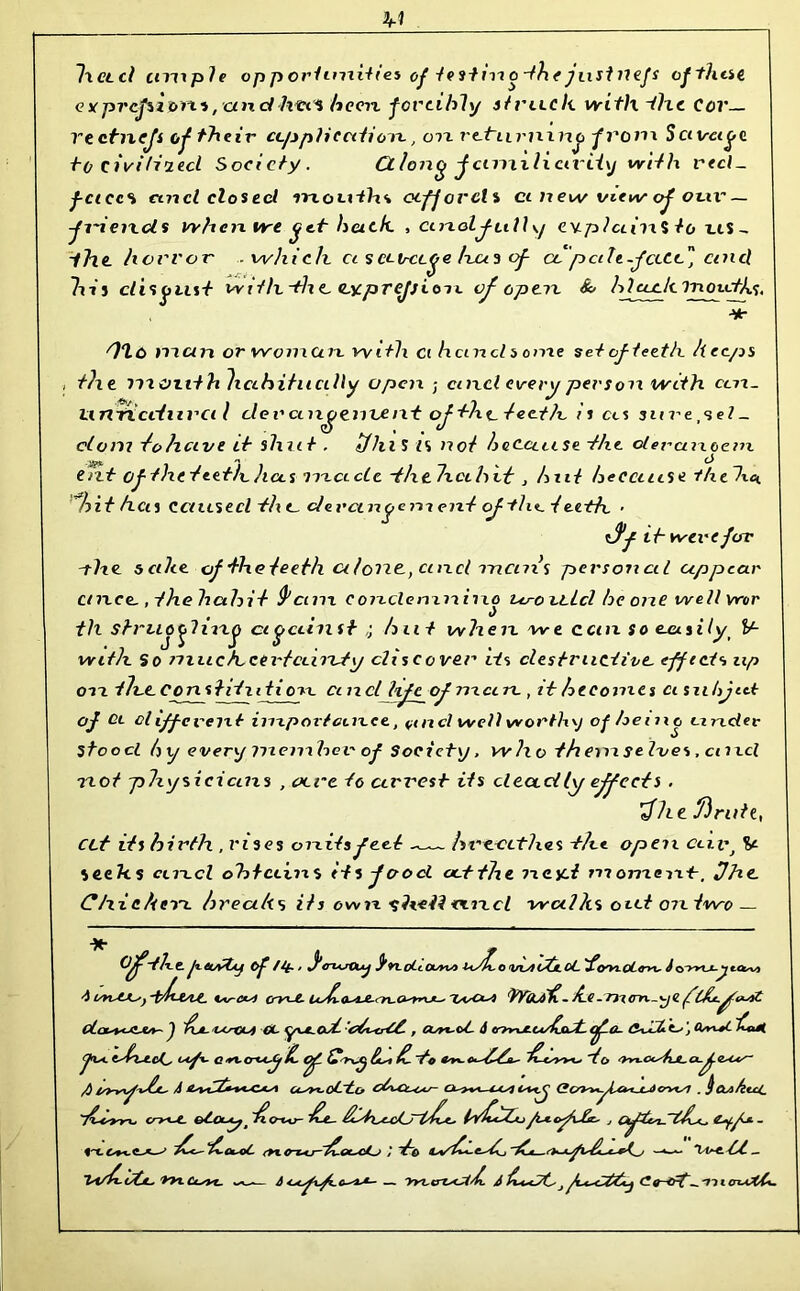 41
had ample opportunities of testing the justnefs of these
exprefsions, and has been forcibly struck with the Cor—
rectnefs of their application, on returning from Savage
to civilized Society. Along familiarity with red_
faces and closed mouths affords a new view of our —
friends when we get back, and fully explains to us_
the horror which a savage has of a "pale-face," and
his disgust with the exprefsion of open & black mouths.
*
No man or woman with a handsome set of teeth keeps
the mouth habitually open; and every person with an_
unnatural derangement of the teeth is as sure, sel_
dom to have it shut. This is not because the derangem
ent of the teeth has made the habit, but because the ha
bit has caused the derangement of the teeth.
If it were for
the sake of the teeth alone, and man's personal appear
ance, the habit I am condemning would be one well wor
th struggling against; but when we can so easily, &
with so much certainty discover its destructive effects up
on the constitution and life of man, it becomes a subject
of a different importance, and well worthy of being under
stood by every member of Society, who themselves, and
not physicians, are to arrest its deadly effects.
The Brute,
at its birth, rises on its feet — breathes the open air, &
seeks and obtains its food at the next moment. The
Chicken breaks its own shell and walks out on two —
*
Of the party of 14, Ioway Indians who visited London some
years since, there was one whose name was Wash-ke-mon-ye (the fast
dancer) he was a great droll, and somewhat of a Critic; and had
picked up enough of English to enable him to make a few
simple sentences and to draw amusing Comparisons. I asked
him one day, how he liked the White people, after the expe_
rience he had had; to which he replied — "well_
white man — suppose — mouth shut, putty coot_mouth